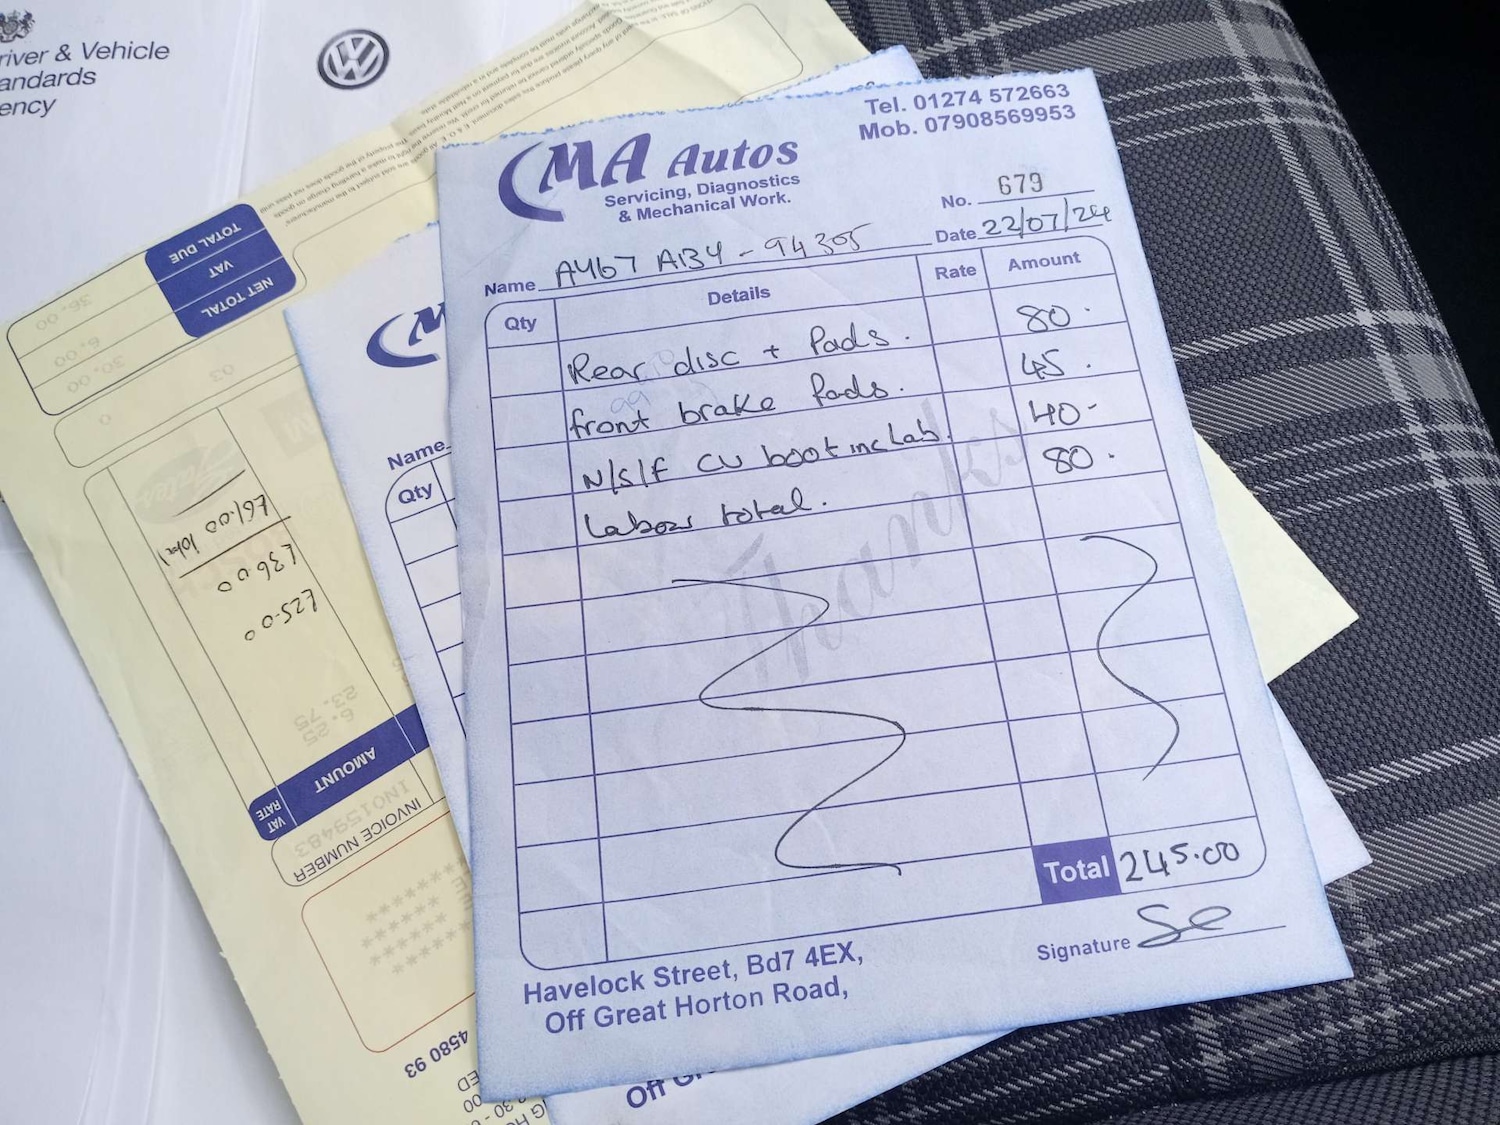 river & Vehicle
andards
ency
CMA Autos
Servicing, Diagnostics
& Mechanical Work.
Tel. 01274 572663
Mob. 07908569953
No. 679
Date 22/07/24
Name AY67 AB4 - 94305
Qty Details Rate Amount
Rear disc + Pads. 80.
front brake Pads. 45.
N/S/F CV boot inc Lab. 40-
Labour total. 80.
Thanks
Total 245.00
Signature
Havelock Street, Bd7 4EX,
Off Great Horton Road,
Name
Qty
Off
TOTAL DUE 36.00
VAT 6.00
NET TOTAL 30.00
03
0
£61.00
£36.00
£25.00
6.25
23.75
AMOUNT
VAT RATE
INVOICE NUMBER
INO159483
4580 93